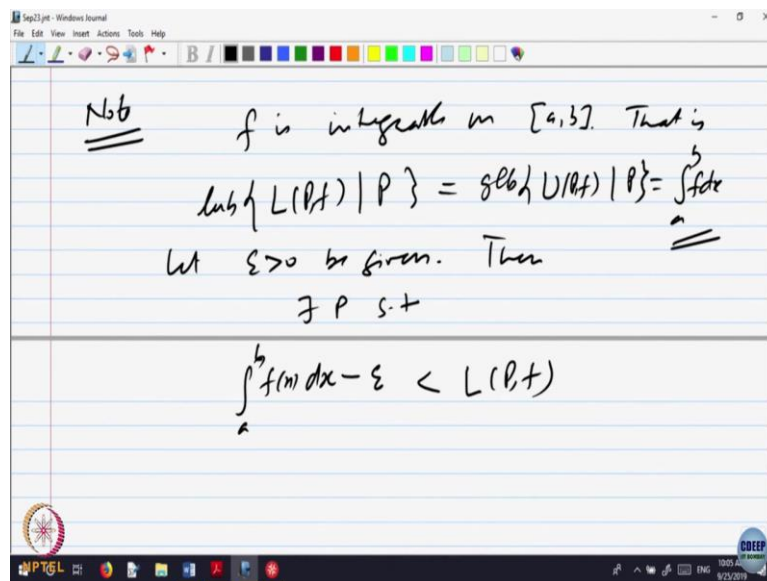 Sep23.jnt - Windows Journal
File Edit View Insert Actions Tools Help
Note f is integrable on [a,b]. That is
lub{ L(P,f) | P } = glb{ U(P,f) | P } = ∫_a^b f dx
Let ε>0 be given. Then
∃ P s.t
∫_a^b f(x) dx - ε < L(P,f)
NPTEL
CDEEP
IIT BOMBAY
ENG
9/25/2019